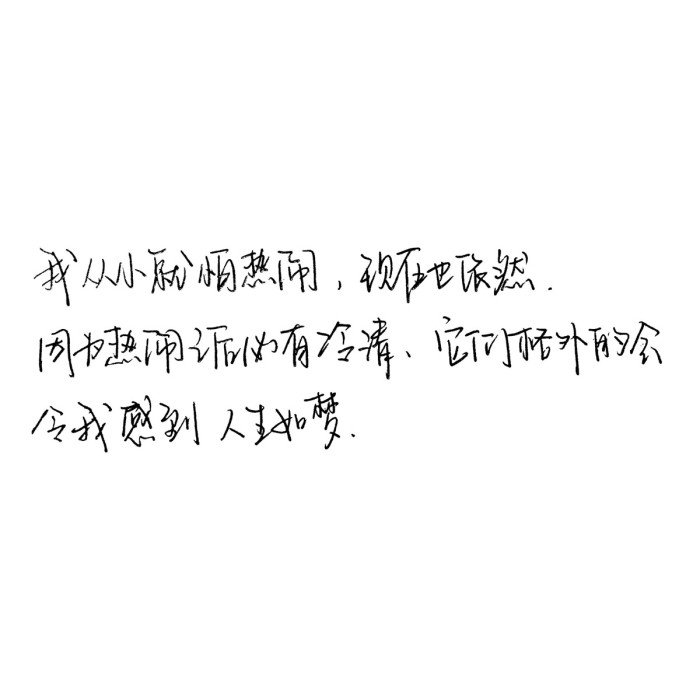 我从小就怕热闹，现在也依然.
因为热闹之后必有冷清、它们格外的会
令我感到人生如梦.